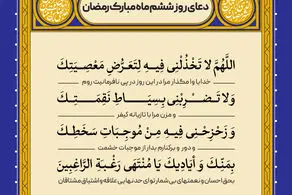 دعای روز ششم ماه مبارک رمضان
اللَّهُمَّ لَا تَخْذُلْنِي فِيهِ لِتَعَرُّضِ مَعْصِيَتِكَ
خدایا وا مگذار مرا در این روز در پی نافرمانیت روم
وَلَا تَضْرِبْنِي بِسِيَاطِ نَقِمَتِكَ
و مزن مرا با تازیانه کیفر
وَ زَحْزِحْنِي فِيهِ مِنْ مُوجِبَاتِ سَخَطِكَ
و دور و برکنارم بدار از موجبات خشمت
بِمَنِّكَ وَ أَيَادِيكَ يَا مُنْتَهَى رَغْبَةِ الرَّاغِبِينَ
بحق احسان و نعمتهای بی شمار تو ای حد نهایی علاقه و اشتیاق مشتاقان